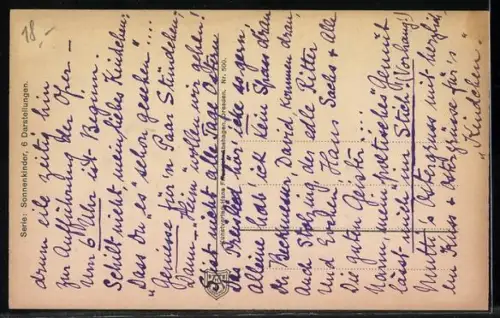 drum eile zeitig hin
zur Aufführung der Oper. —
Um 6 Uhr ist Beginn.
Schilt nicht mein liebes Kindchen:
"Dass Du "es" schon gesehen"....
"Alleine für'n Paar Stündchen,
Dann "Heim" wollen wir gehen!
Ist nicht alle Tage Ostern
Die hör' ich so gern,
Alleine hab' ich kein Spass dran.
Der Beckmesser, David kommen dran,
Auch Stolzing der edle Ritter
Und Evchen, Hans Sachs & alle
Die guten Geister....
Norm, mein "poetisches" Gemüt
lässt mich im Stich! (Vorhang!)
Mutti's Ostergruss mit herzlich-
em Kuss & für's
"Kindchen."
Serie: Sonnenkinder, 6 Darstellungen.
Nr. 500.
18,-